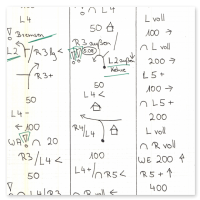 L4
! Bremsen
L2
R3 lg <
R3+
50
L4-
← 100
WA ! ∩ 20
R3/L4 <
50
∩ L4/R3
50
R3 außen
L2 außen
Kehre
50
L4 <
R4/L4
100
L4+/∩ R5 <
∩ R voll ←
L voll
100 →
∩ R voll
200 →
L5+
100 →
∩ L5+
200
L voll
∩ R voll
WE 200 ↑
R5+ ↑
400